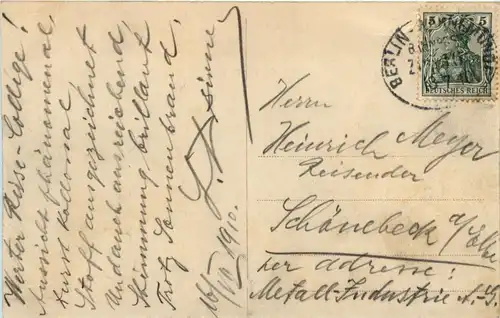 Werter Reise-College!
Aussicht phänomenal,
Durst kollosal
Stoff ausgezeichnet
Andauch ausreichend
Stimmung brillant
Trotz Sonnenbrand,
1910.
BERLIN-WARNEMÜNDE
5 5
DEUTSCHES REICH
Herrn
Heinrich Meyer
Reisender
Schönebeck a/Elbe
per adresse:
Metall-Industrie A.-G.